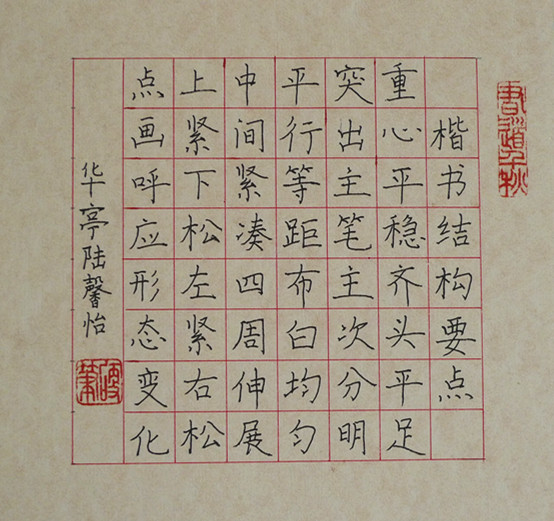 書道千秋
楷书结构要点
重心平稳齐头平足
突出主笔主次分明
平行等距布白均匀
中间紧凑四周伸展
上紧下松左紧右松
点画呼应形态变化
华亭陆馨怡